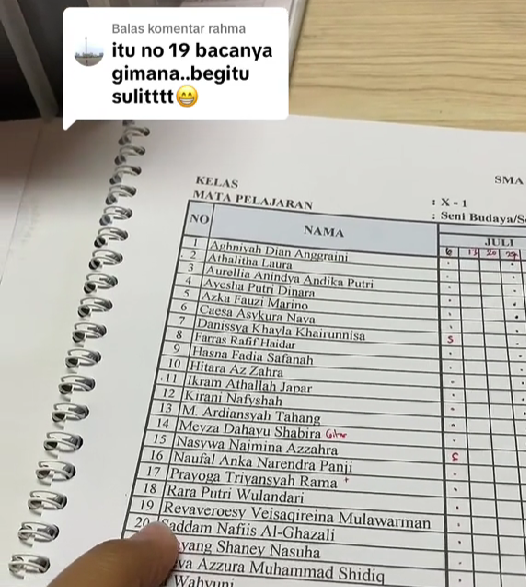 Balas komentar rahma
itu no 19 bacanya
gimana..begitu
sulitttt😁
SMA
KELAS : X - 1
MATA PELAJARAN : Seni Budaya/S
NO NAMA JULI
6 13 20 27
1 Aghniyah Dian Anggraini
2 Athalitha Laura
3 Aurellia Anindya Andika Putri
4 Ayesha Putri Dinara
5 Azka Fauzi Marino
6 Caesa Asykura Nava
7 Danissya Khayla Khairunnisa S
8 Farras Rafif Haidar
9 Hasna Fadia Safanah
10 Hitara Az Zahra
11 Ikram Athallah Janar
12 Kirani Nafyshah
13 M. Ardiansyah Tahang
14 Meyza Dahayu Shabira Gitar
15 Nasywa Naimina Azzahra
16 Naufal Anka Narendra Panji
17 Prayoga Triyansyah Rama
18 Rara Putri Wulandari
19 Revaveroesy Veisaqireina Mulawarman
20 Saddam Nafiis Al-Ghazali
yang Shaney Nasuha
va Azzura Muhammad Shidiq
Wahyuni